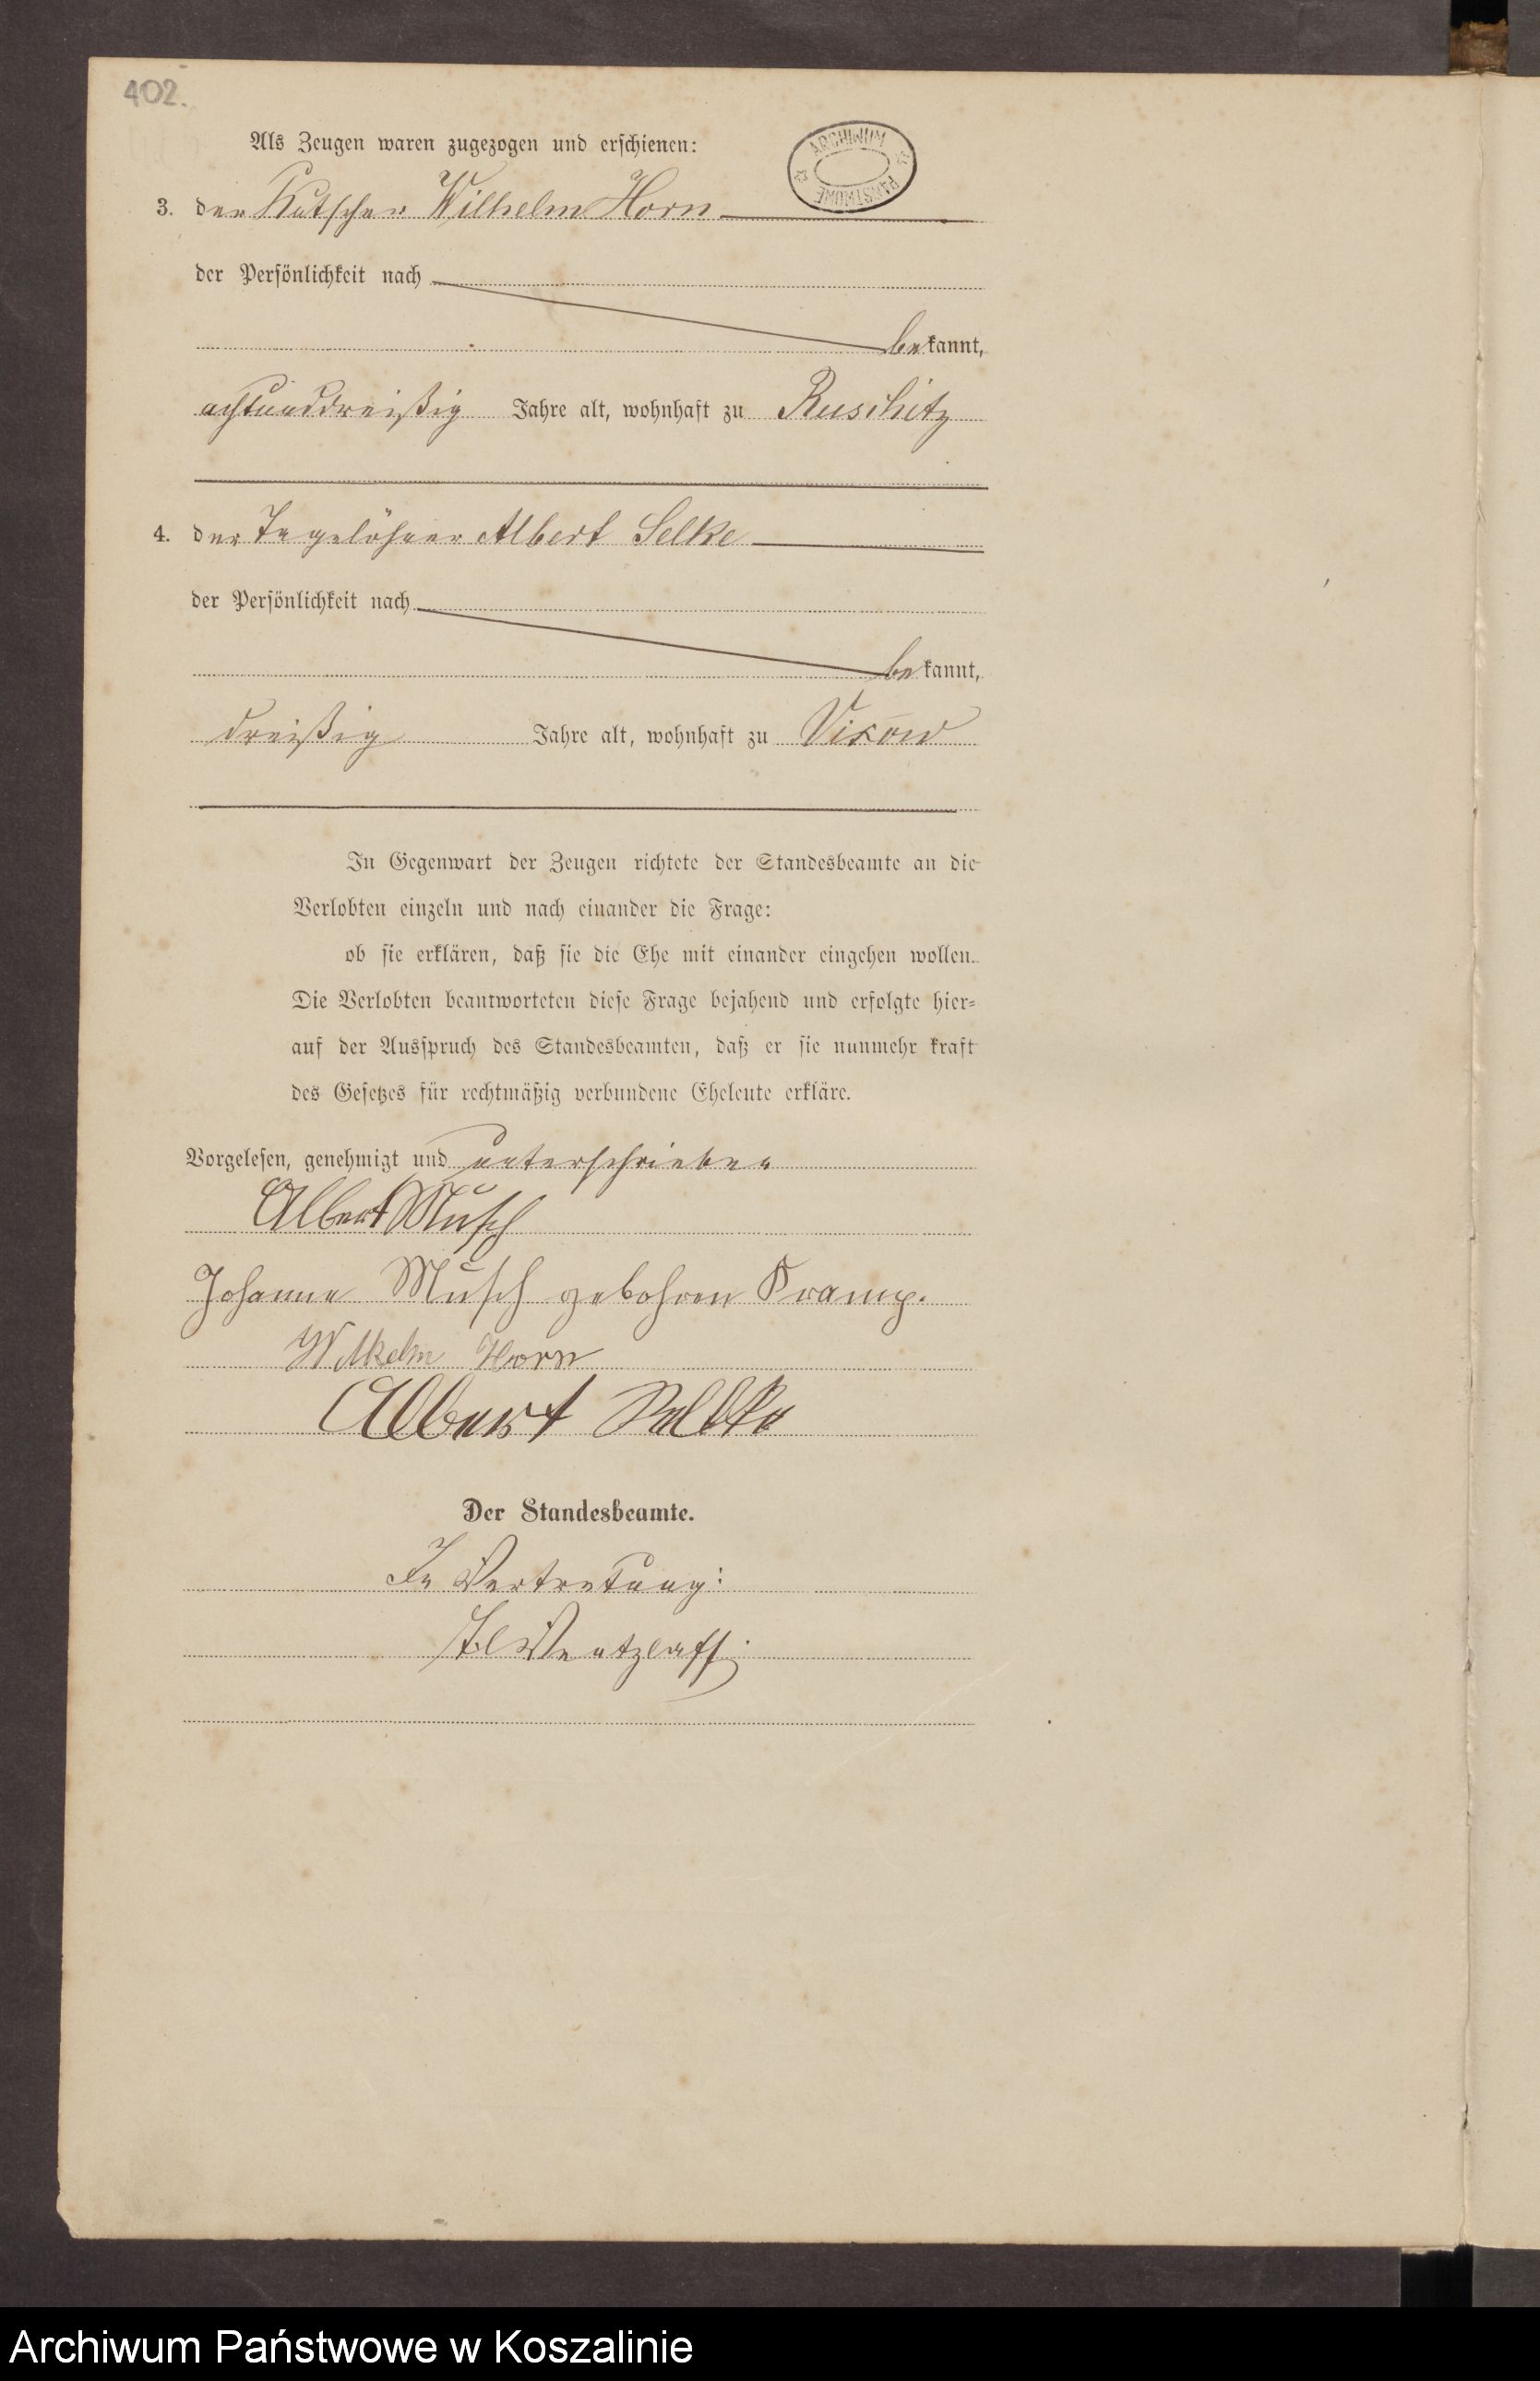 402.
Als Zeugen waren zugezogen und erschienen:
ARCHIWUM PAŃSTWOWE
3. der Kutscher Wilhelm Horn
der Persönlichkeit nach
bekannt,
achtunddreißig Jahre alt, wohnhaft zu Ruschitz
4. der Tagelöhner Albert Selke
der Persönlichkeit nach
bekannt,
dreißig Jahre alt, wohnhaft zu Vikow
In Gegenwart der Zeugen richtete der Standesbeamte an die
Verlobten einzeln und nach einander die Frage:
ob sie erklären, daß sie die Ehe mit einander eingehen wollen.
Die Verlobten beantworteten diese Frage bejahend und erfolgte hier-
auf der Ausspruch des Standesbeamten, daß er sie nunmehr kraft
des Gesetzes für rechtmäßig verbundene Eheleute erkläre.
Vorgelesen, genehmigt und unterschrieben
Albert Musch
Johanne Musch gebohren Kramp.
Wilhelm Horn
Albert
Der Standesbeamte.
In Vertretung:
Wentzlaff.
Archiwum Państwowe w Koszalinie